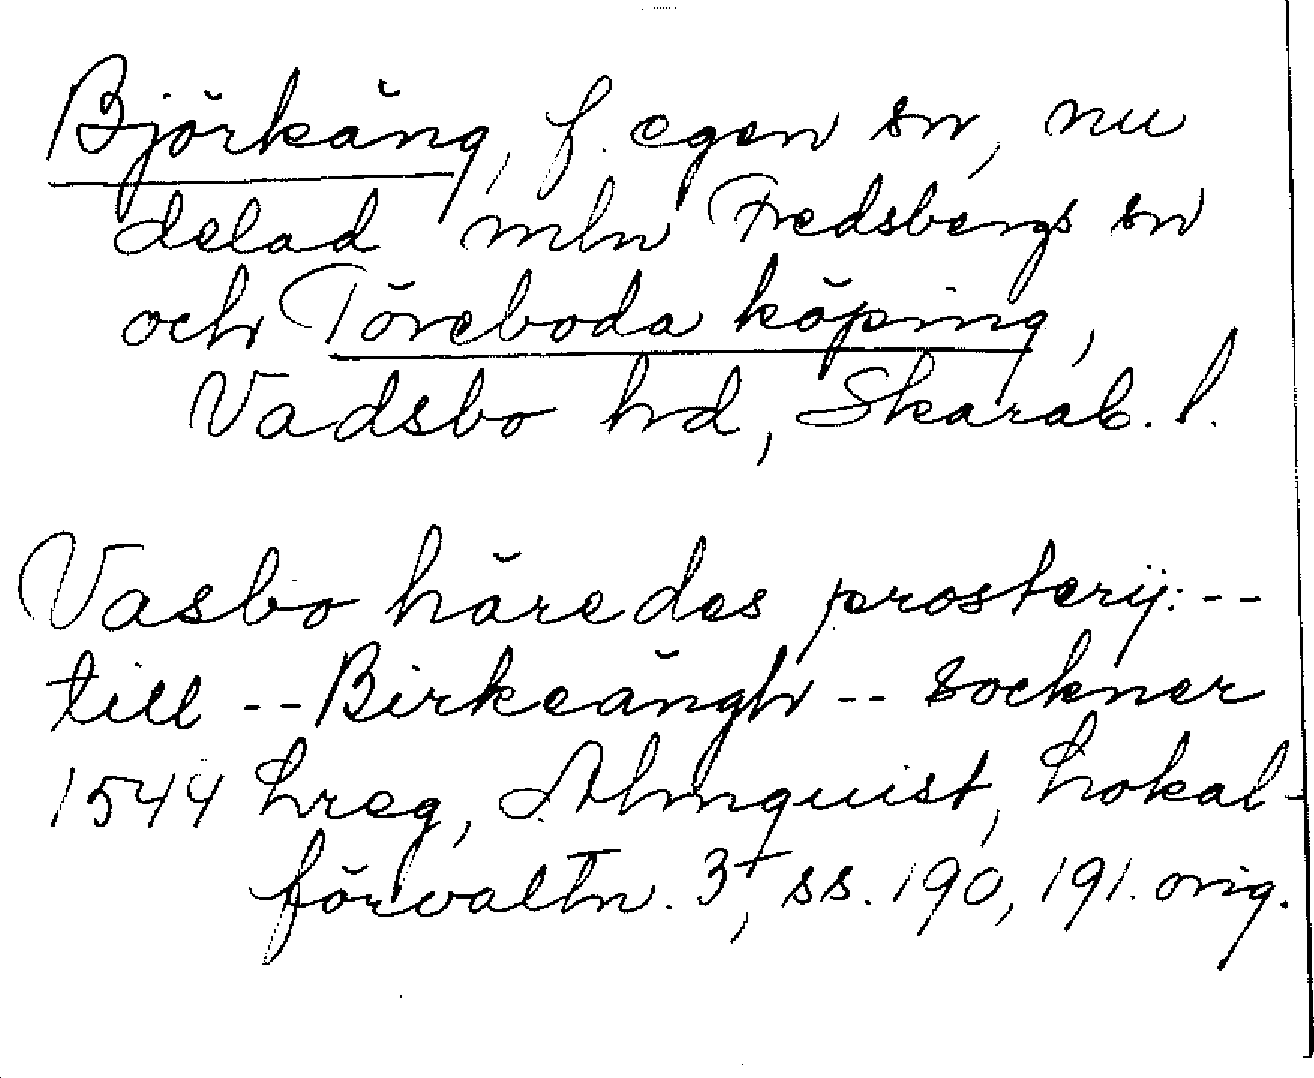 Björkäng, f. egen sn, nu
delad mln Fredsbergs sn
och Töreboda köping,
Vadsbo hd, Skarab. l.
Vasbo häredes prosterij: --
till -- Birkeängh -- sockner
1544 Lreg, Almquist, Lokal-
förvaltn. 3⁺, ss. 190, 191. orig.